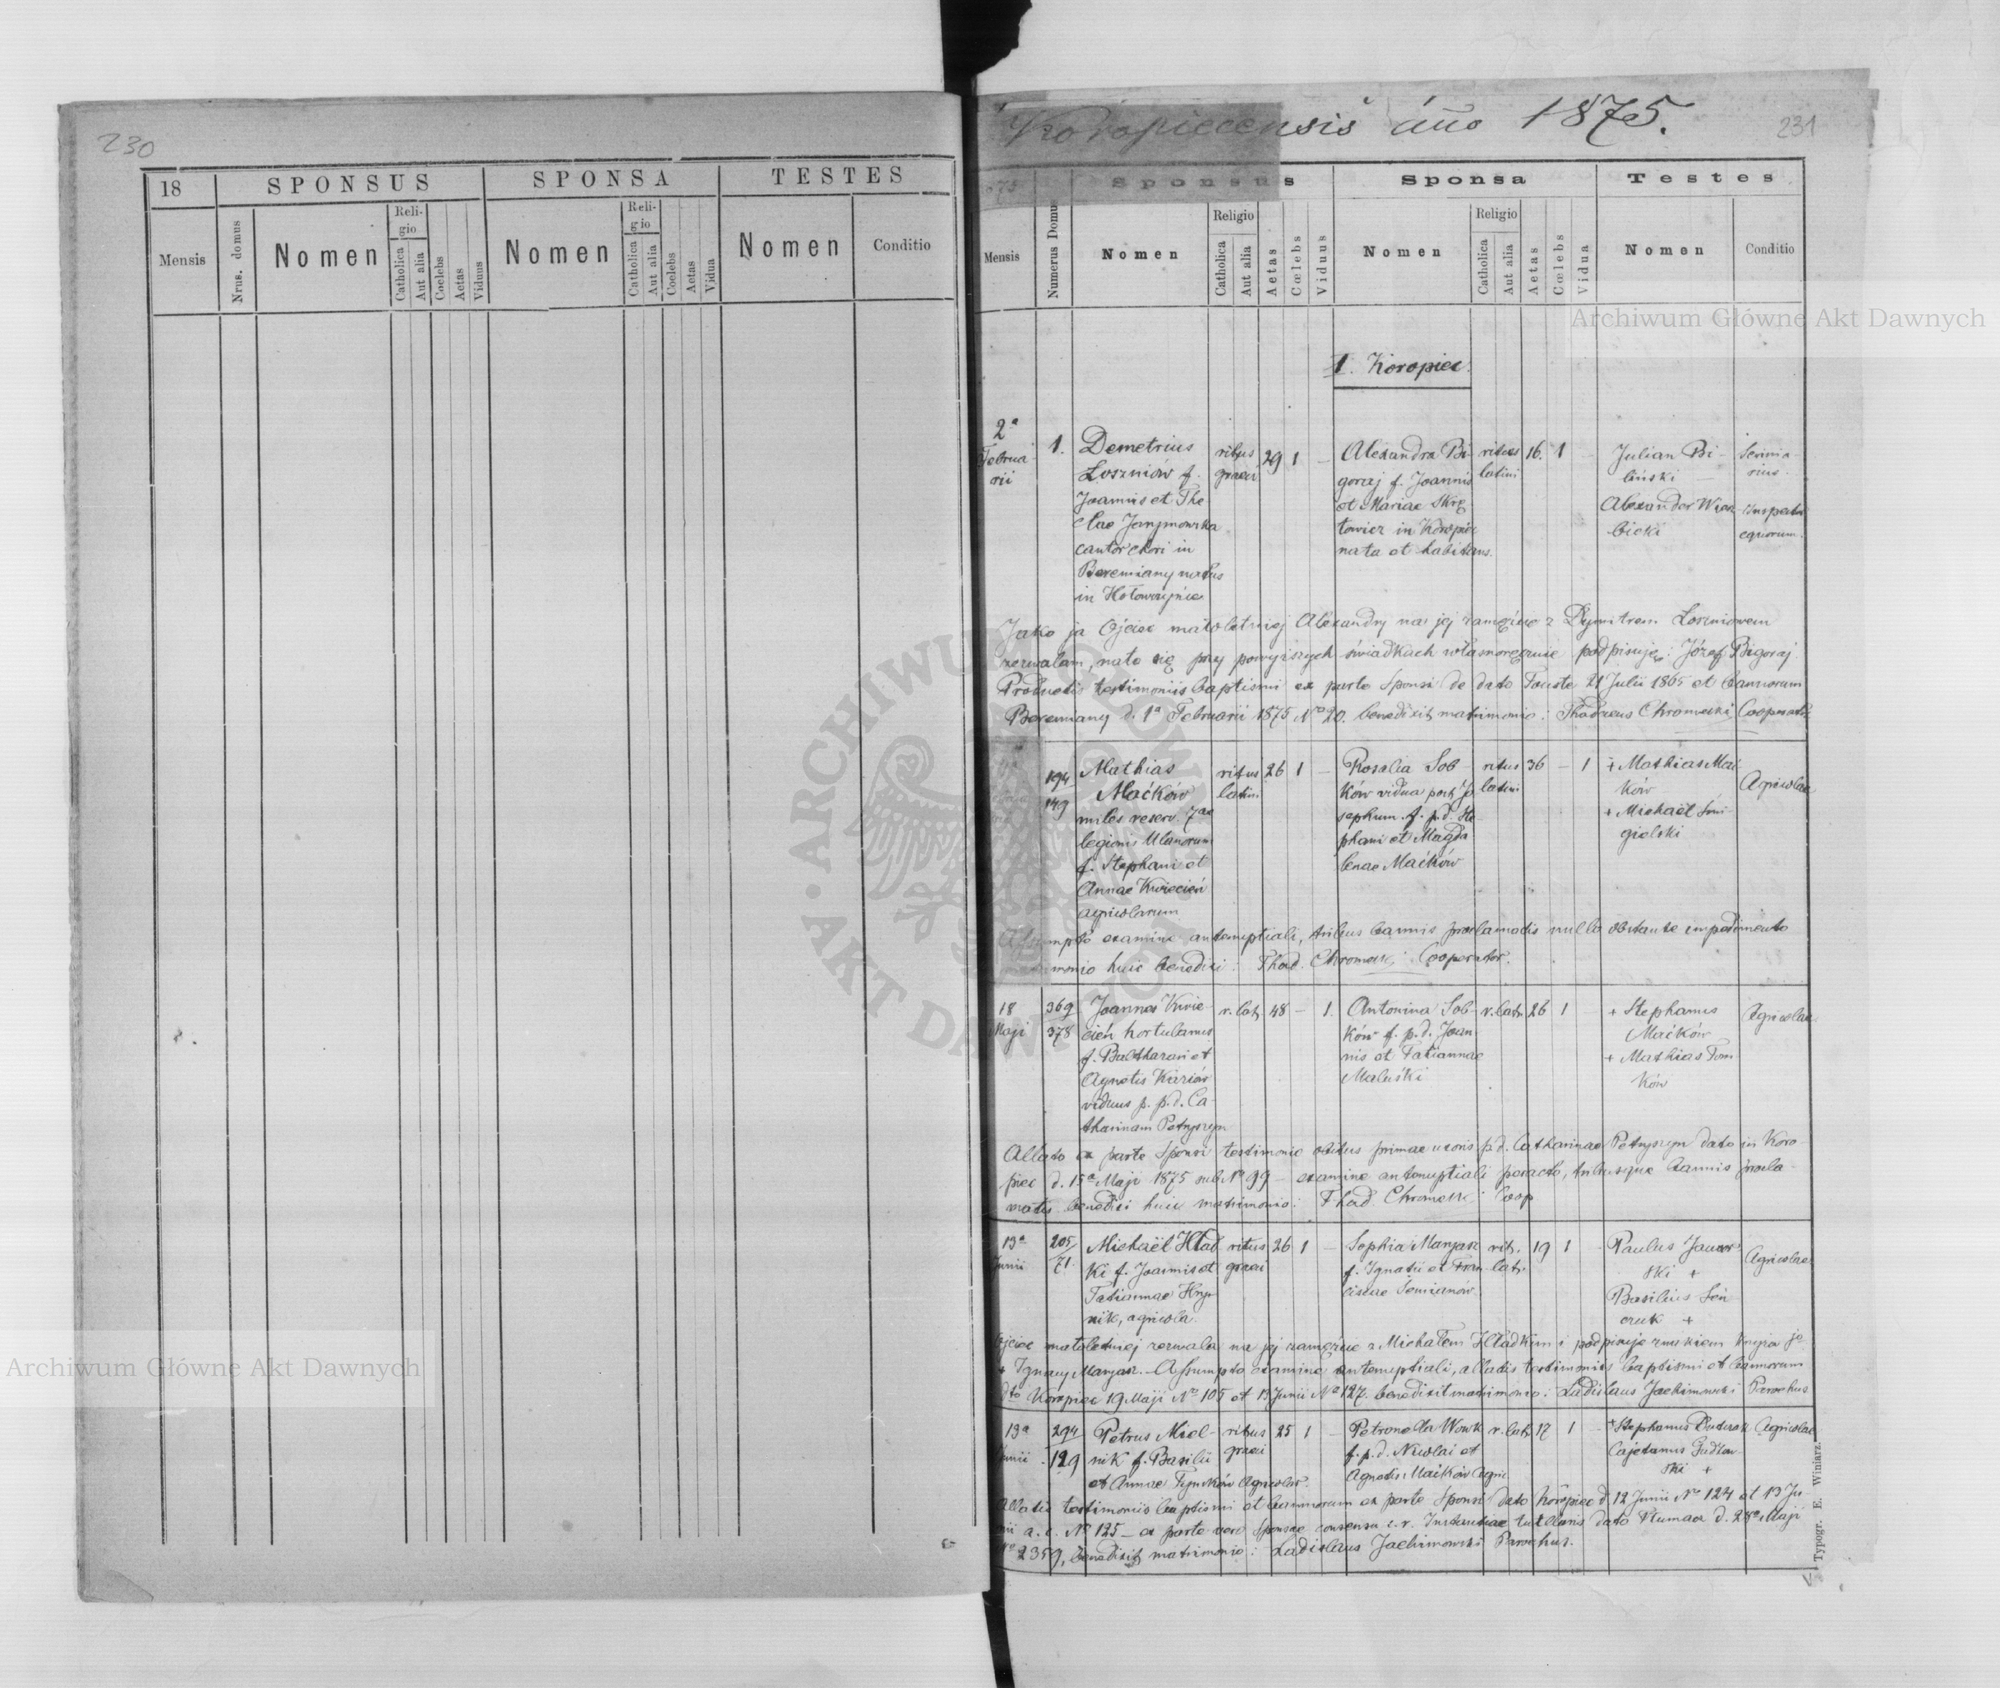 230
18
SPONSUS
SPONSA
TESTES
Mensis
Nrus. domus
Nomen
Religio
Catholica
Aut alia
Coelebs
Aetas
Viduus
Nomen
Religio
Catholica
Aut alia
Coelebs
Aetas
Vidua
Nomen
Conditio
Koropiecensis año 1875.
231
Sponsus
Sponsa
Testes
Mensis
Numerus Domus
Nomen
Religio
Catholica
Aut alia
Aetas
Cœlebs
Viduus
Nomen
Religio
Catholica
Aut alia
Aetas
Cœlebs
Vidua
Nomen
Conditio
Archiwum Główne Akt Dawnych
1. Koropiec.
2ª
Februa
rii
1.
Demetrius
Łoszniów f.
Joannis et The
clae
cantor chori in
Beremiany natus
in
ritus
graeci
29 1 –
Alexandra Bi
goraj f. Joannis
et Mariae Skrę
towicz in Koropiec
nata et habitans.
ritus
latini
16. 1 –
Julian Bi-
liński
Alexander Wierz
bicki
equorum.
Jako ja Ojciec małoletniej Alexandry na jej zamęście z Dymitrem Łoszniowem
zezwalam, nato się przy powyższych świadkach własnoręcznie podpisuję: Józef Bigoraj
Productis testimoniis baptismi ex parte Sponsi de dato Touste 21 Julii 1865 et bannorum
Beremiany d. 1ª Februarii 1875 No 20. benedixit matrimonio: Thadaeus Chromecki Cooperator
194
149
Mathias
Maćków
miles reserv. 7ae
legionis Ulanorum
f. Stephani et
Annae Kwiecień
agricolarum
ritus
latini
26 1 –
Rosalia Sob
ków vidua post Jo
sephum f. p.d. Ste
phani et Magda
lenae Maćków
ritus
latini
36 – 1
+ Mathias Mać
ków
+ Michaël Śmi
gielski
Agricolae
Assumpto examine antenuptiali, tribus bannis proclamatis nullo obstante impedimento
monio huic benedixi: Thad. Chromecki Cooperator.
18
Maji
369
378
Joannes Kwie-
cień hortulanus
f. Balthazari et
Agnetis
viduus p. p.d. Ca-
tharinam Petryszyn
r. lat. 48 – 1.
Antonina Sob-
ków f. p.d. Joan-
nis et Tatiannae
Maluśki
r. lat. 26 1 –
+ Stephanus
Maćków
+ Mathias Tom
ków
Agricolae
Allato ex parte Sponsi testimonio obitus primae uxoris p.d. Catharinae Petryszyn dato in Koro-
piec d. 15ª Maji 1875 sub No 99 – examine antenuptiali peracto, tribusque bannis procla-
matis benedixi huic matrimonio: Thad. Chromecki Coop
13ª
Junii
205
71.
Michaël Hład
ki f. Joannis et
Tatiannae Hryn
nik, agricola.
ritus
graeci
26 1 –
Sophia Maryasz
f. Ignatii et Fran
ciscae Semianów
rit.
lat.
19 1 –
Paulus Jawor
ski +
Basilius
+
Agricolae
Ojciec małoletniej zezwala na jej zamęście z Michałem Hładkim i podpisuje znakiem krzyża
+ Ignacy Maryasz. Assumpto examine antenuptiali, allatis testimoniis baptismi et bannorum
dto Koropiec 19 Maji No 105 et 13 Junii No 127. benedixit matrimonio: Ladislaus Jachimowski Parochus
13ª
Junii
294
129
Petrus Miel-
nik f. Basilii
et Annae Agricolar.
ritus
graeci
25 1 –
Petronella Wowk
f. p.d. Nicolai et
Agnetis Maćków Agric
r. lat. 17 1 –
+ Stephanus
Cajetanus
ski +
Agricolae
Allatis testimoniis baptismi et bannorum ex parte Sponsi dato Koropiec d. 12 Junii No 124 et 13 Ju-
nii a. c. No 125 – ex parte vero Sponsae consensu c. r. Instantiae tutelaris dato Tłumacz d. 28ª Maji
No 2359, benedixit matrimonio: Ladislaus Jachimowski Parochus.
Typogr. E. Winiarz.
ARCHIWUM GŁÓWNE AKT DAWNYCH
Archiwum Główne Akt Dawnych